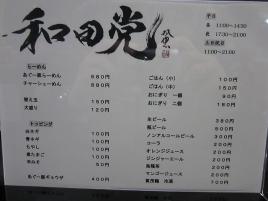 和田党
平日
昼 11:00~14:30
夜 17:30~21:00
土日祝日
11:00~21:00
らーめん
あぐー豚らーめん 680円
チャーシューめん 880円
替え玉 150円
大盛り 120円
トッピング
白ネギ 100円
青ネギ 100円
もやし 100円
煮たまご 100円
キムチ 100円
あぐー豚ギョウザ 400円
ごはん(小) 100円
ごはん(中) 150円
おにぎり 一個 100円
おにぎり 二個 180円
生ビール 380円
瓶ビール 500円
ノンアルコールビール 300円
コーラ 200円
オレンジジュース 200円
ジンジャーエール 200円
烏龍茶 200円
マンゴージュース 200円
700円